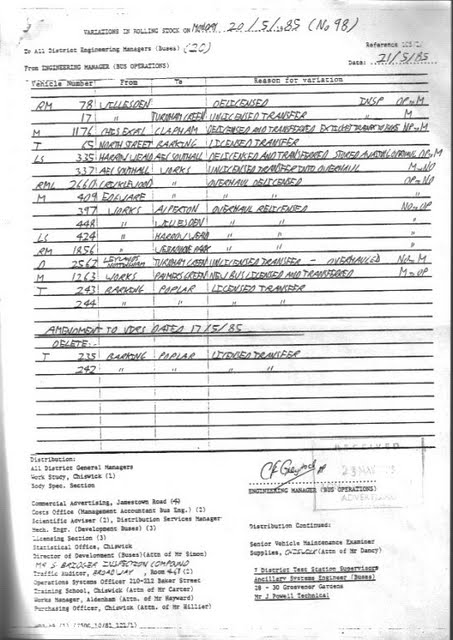 VARIATIONS IN ROLLING STOCK ON MONDAY 20/5/1985 (No 98)
To All District Engineering Managers (Buses) (20)
Reference
From ENGINEERING MANAGER (BUS OPERATIONS)
Date: 21/5/85
Vehicle Number From To Reason for variation
RM 78 WILLESDEN DELICENSED INSP OP to M
17 " TURNHAM GREEN UNLICENSED TRANSFER " M
M 1176 CHIS EXPL CLAPHAM DELICENSED AND TRANSFERRED M
T 65 NORTH STREET BARKING LICENSED TRANSFER
LS 335 HARROW WEALD AEC SOUTHALL DELICENSED AND TRANSFERRED STORED AWAITING OP to M
337 AEC SOUTHALL WORKS UNLICENSED TRANSFER INTO OVERHAUL M to NO
RML 2660 CRICKLEWOOD " OVERHAUL DELICENSED OP to NO
M 409 EDGWARE " " " "
397 WORKS ALPERTON OVERHAUL RELICENSED NO to OP
448 " WILLESDEN " " "
LS 424 " HARROW WEALD " " "
RM 1856 " WESTBOURNE PARK " " "
D 2567 LEYLANDS NOTTINGHAM TURNHAM GREEN UNLICENSED TRANSFER - OVERHAULED NO to M
M 1263 WORKS PALMERS GREEN NEW BUS LICENSED AND TRANSFERRED M to OP
T 243 BARKING POPLAR LICENSED TRANSFER
244 " " " "
AMENDMENT TO VORS DATED 17/5/85
DELETE:-
T 235 BARKING POPLAR LICENSED TRANSFER
242 " " " "
RECEIVED
23 MAY
ADVERTISING
ENGINEERING MANAGER (BUS OPERATIONS)
Distribution:
All District General Managers
Work Study, Chiswick (1)
Body Spec. Section
Commercial Advertising, Jamestown Road
Costs Office (Management Accountant Bus Eng.) (2)
Scientific Adviser (2), Distribution Services Manager
Mech. Engr. (Development Buses) (3)
Licensing Section (3)
Statistical Office, Chiswick
Director of Development (Buses)(Attn of Mr Simon)
MR S BADIOGER INSPECTION COMPOUND
Traffic Auditor, BROADWAY, Room (1)
Operations Systems Officer 210-212 Baker Street
Training School, Chiswick (Attn of Mr Carter)
Works Manager, Aldenham (Attn. of Mr Hayward)
Purchasing Officer, Chiswick (Attn. of Mr Hillier)
Distribution Continued:
Senior Vehicle Maintenance Examiner
Supplies, CHISWICK (Attn of Mr Dancy)
7 District Test Station Supervisors
Ancillary Systems Engineer (Buses)
28 - 30 Grosvenor Gardens
Mr J Powell Technical